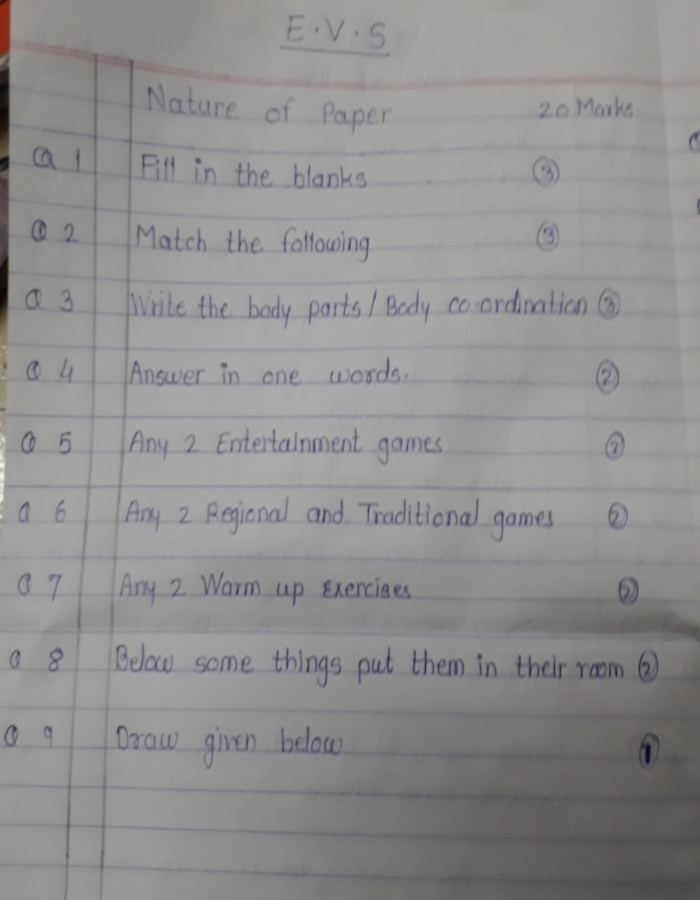 E.V.S
Nature of Paper 20 Marks
Q 1 Fill in the blanks 3
Q 2 Match the following 3
Q 3 Write the body parts / Body co-ordination 3
Q 4 Answer in one words. 2
Q 5 Any 2 Entertainment games 2
Q 6 Any 2 Regional and Traditional games 2
Q 7 Any 2 Warm up Exercises 2
Q 8 Below some things put them in their room 2
Q 9 Draw given below 1